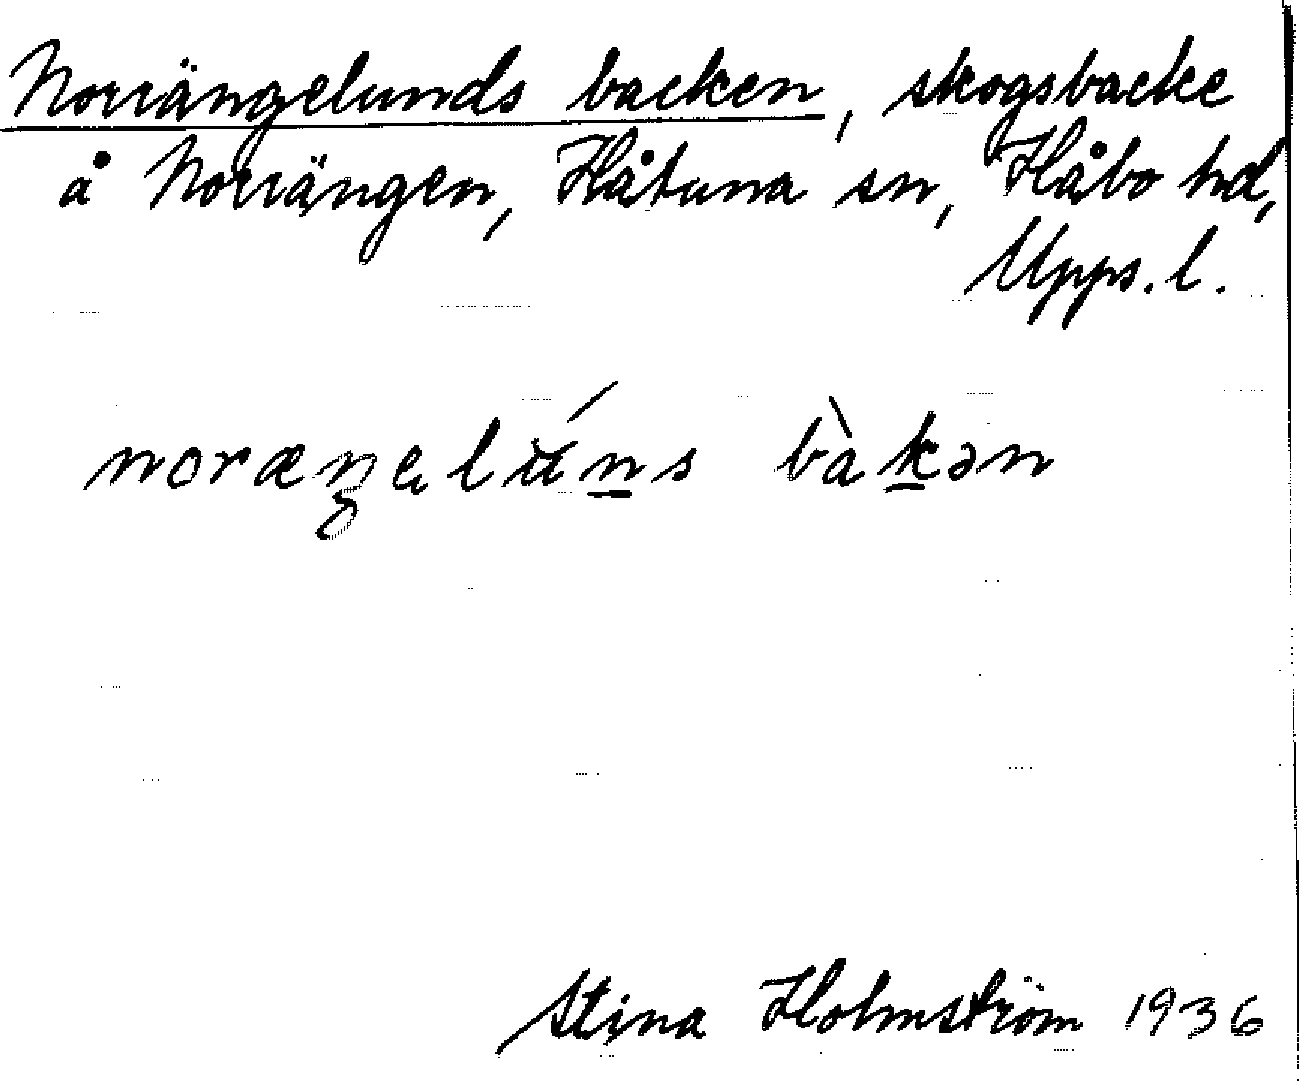 Norrängelunds backen, skogsbacke
å Norrängen, Håtuna sn, Håbo hd,
Upps. l.
noræŋelúns bàkən
Stina Holmström 1936